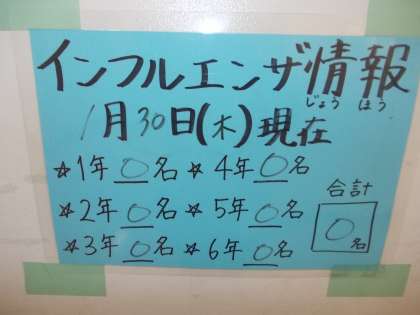 インフルエンザ情報
じょう ほう
1月30日(木)現在
☆1年 0名 ☆4年 0名
☆2年 0名 ☆5年 0名
☆3年 0名 ☆6年 0名
合計
0名